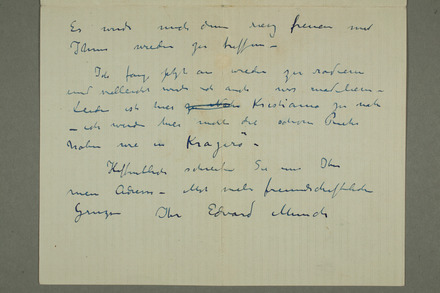 Es würde mich sehr freuen mit
Ihnen wieder zu treffen –
Ich fange jetzt an wieder zu radieren
und vielleicht auch
Leider ist hier Kristiania zu
– ich werde hier nicht die schöne
haben wie in Kragerö –
Hoffentlich schreiben Sie mir Ihre
neue Adresse – Mit freundschaftlichen
Grüssen Ihr Edvard Munch